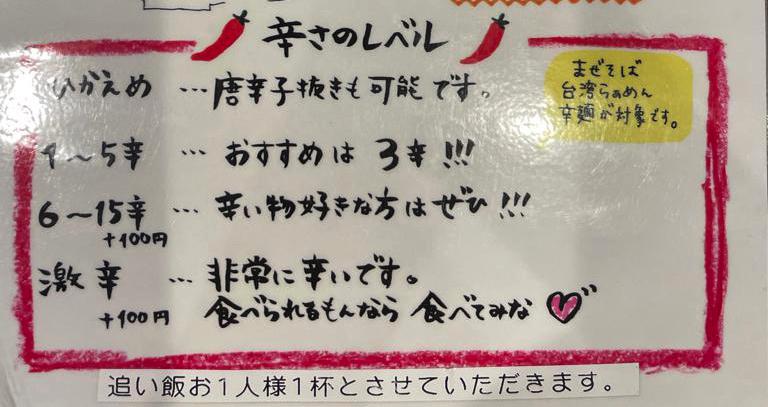 辛さのレベル
ひかえめ …唐辛子抜きも可能です。
まぜそば
台湾らぁめん
辛麺が対象です。
1～5辛 … おすすめは 3辛!!!
6～15辛 … 辛い物好きな方はぜひ!!!
+100円
激辛 … 非常に辛いです。
+100円 食べられるもんなら 食べてみな
追い飯お1人様1杯とさせていただきます。